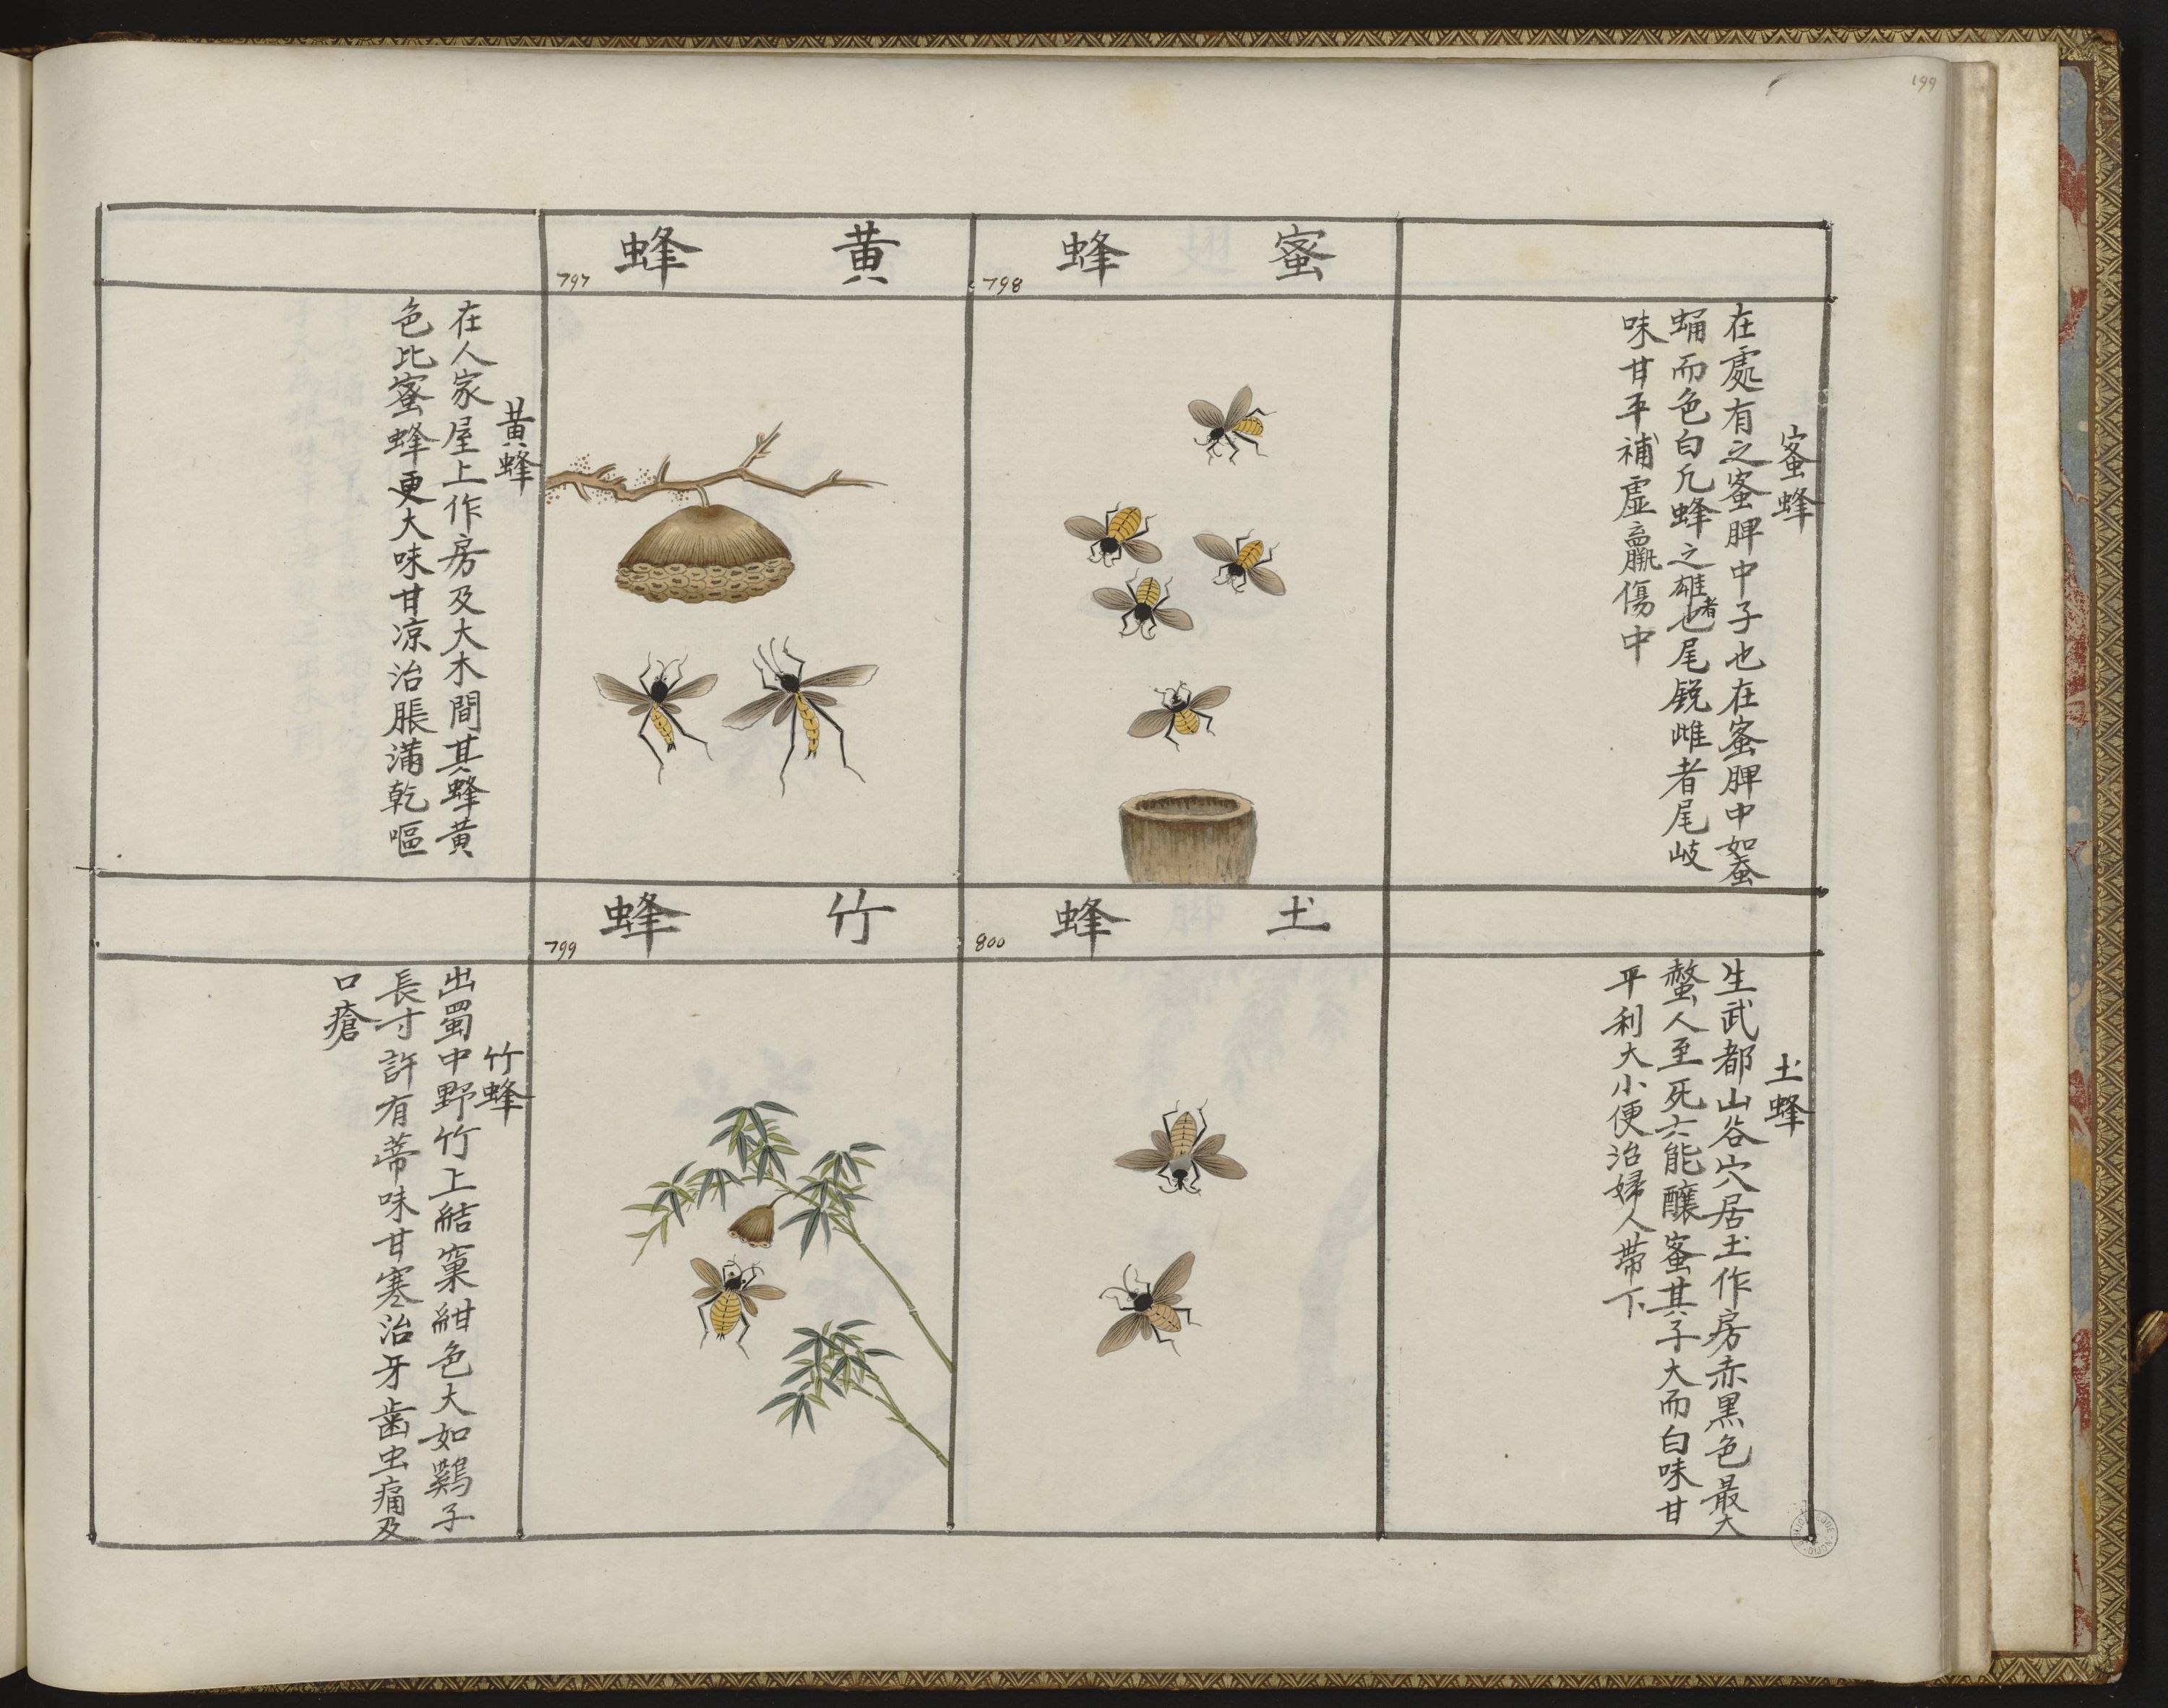 199
蜜蜂
798
蜜蜂
在處有之蜜脾中子也在蜜脾中如蚕
蛹而色白凢蜂之雄者也尾銳雌者尾岐
味甘平補虛羸傷中
黃蜂
797
黃蜂
在人家屋上作房及大木間其蜂黃
色比蜜蜂更大味甘凉治脹滿乾嘔
土蜂
800
土蜂
生武都山谷穴居土作房赤黑色最大
螫人至死亦能釀蜜其子大而白味甘
平利大小便治婦人帶下
竹蜂
799
竹蜂
出蜀中野竹上結窠紺色大如鷄子
長寸許有蒂味甘寒治牙齒虫痛及
口瘡